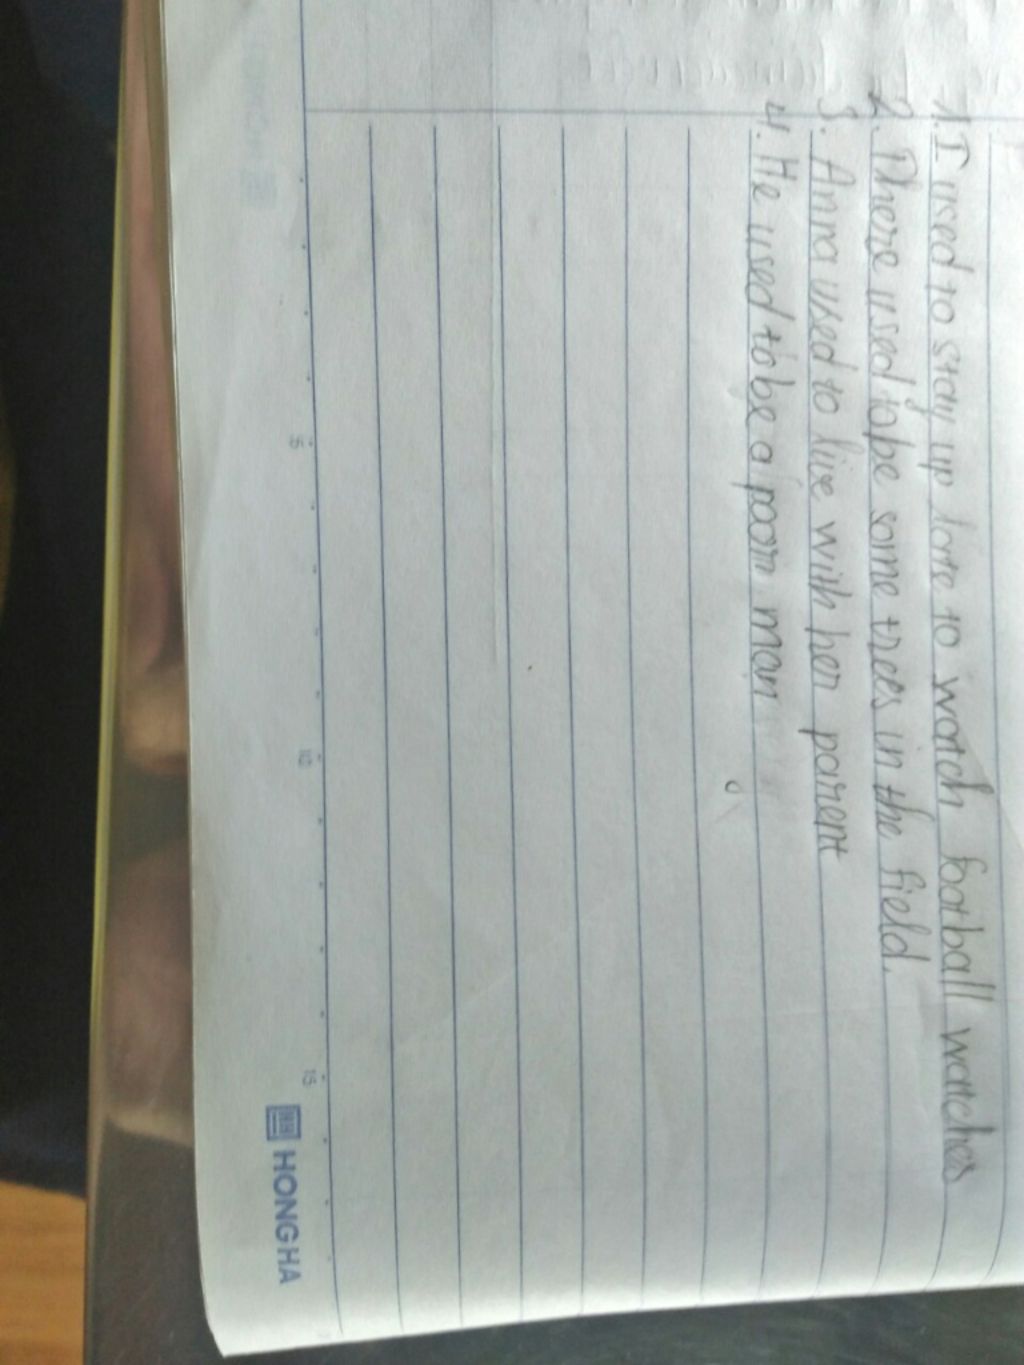 1. I used to stay up late to watch football watches
2. There used to be some trees in the field.
3. Anna used to live with her parent
4. He used to be a poor man
5
10
15
HONG HA